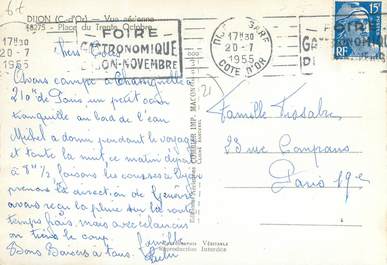 DIJON (C.-d'Or) — Vue aérienne
48275 - Place du Trente Octobre
17H30
20-7
1955
FOIRE
GASTRONOMIQUE
DIJON-NOVEMBRE
GARE
17H30
20-7
1955
COTE D'OR
FOIRE
15F
RF
Avons campé à
de Paris un petit coin
tranquille au bord de l'eau
Michel a dormi pendant le voyage
et toute la nuit, ce matin départ
à 8h ½, faisons les courses à Dijon
prenons la direction de Genève
avons reçu la pluie sur la route
temps frais, mais avec
on tiens le coup.
Bons Baisers à tous.
Famille
23 rue Compans
Paris 19e
COMBIER IMP. MACON
Photographie Véritable
Reproduction Interdite